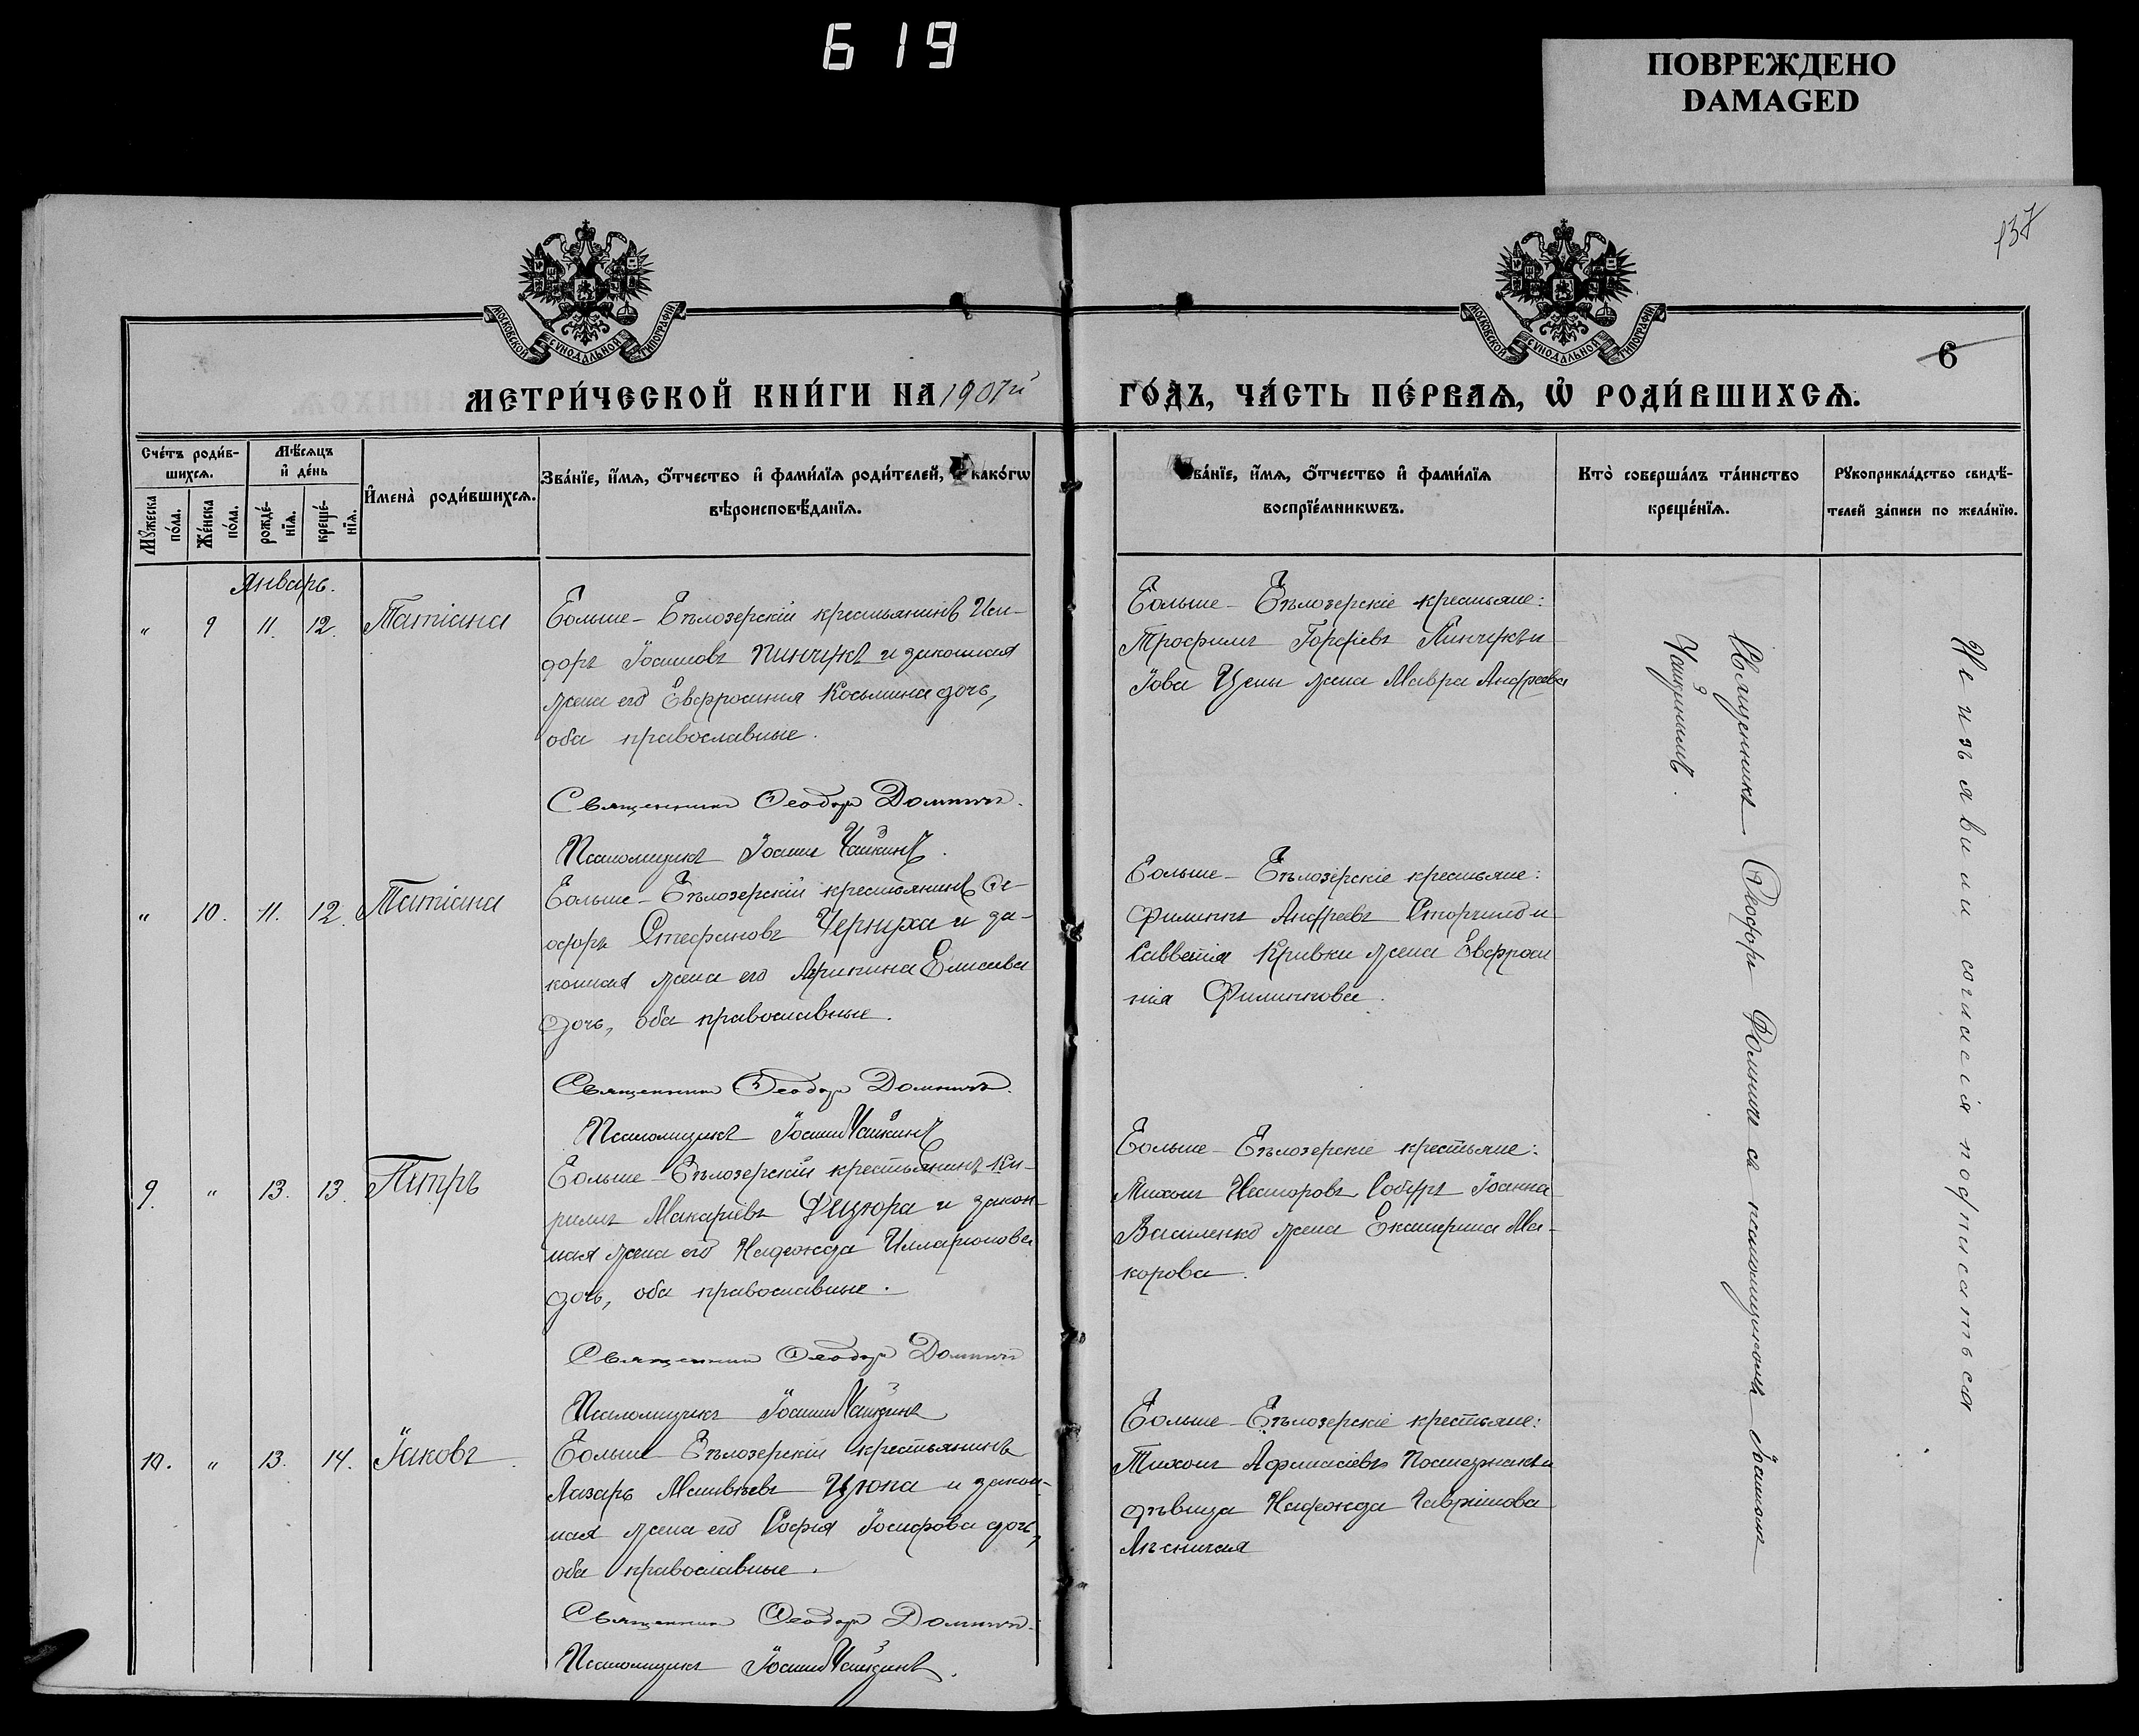 619
ПОВРЕЖДЕНО
DAMAGED
137
МОСКОВСКОЙ СѴНОДАЛЬНОЙ ТИПОГРАФІИ
МОСКОВСКОЙ СѴНОДАЛЬНОЙ ТИПОГРАФІИ
6
МЕТРИ́ЧЕСКОЙ КНИ́ГИ НА 1907й
ГО́ДЪ, ЧА́СТЬ ПЕ́РВАѦ, Ѡ҆ РОДИ́ВШИХСѦ.
Сче́тъ роди́в-
шихсѧ.
Мꙋ́жеска по́ла.
Же́нска по́ла.
Мѣ́сѧцъ
и҆ де́нь
рожде́-
нїѧ.
креще́-
нїѧ.
И҆мена̀ роди́вшихсѧ.
Зва́нїе, и҆́мѧ, ѻ҆́тчество и҆ фами́лїѧ роди́телей, како́гѡ
вѣроисповѣ́данїѧ.
Зва́нїе, и҆́мѧ, ѻ҆́тчество и҆ фами́лїѧ
воспрїе́мникѡвъ.
Кто̀ соверша́лъ та́инство
креще́нїѧ.
Рꙋкоприкла́дство свидѣ́-
телей за́писи по жела́нїю.
Январь.
" 9 11. 12. Татіана
Больше-Бѣлозерскій крестьянинъ Иси-
доръ Іоанновъ Пинчукъ и законная
жена его Евфросинія Косьмина дочь,
оба православные.
Священникъ Ѳеодоръ Домничъ.
Псаломщикъ Іоаннъ Чайкинъ.
Больше-Бѣлозерскіе крестьяне:
Трофимъ Гордіевъ Пинчукъ и
Іова Цепы жена Мавра Андреева
" 10. 11. 12. Татіана
Больше-Бѣлозерскій крестьянинъ Ѳе-
одоръ Стефановъ Чернуха и за-
конная жена его Агрипина Елисѣева
дочь, оба православные.
Священникъ Ѳеодоръ Домничъ.
Псаломщикъ Іоаннъ Чайкинъ
Больше-Бѣлозерскіе крестьяне:
Филиппъ Андреевъ и
Савватія Кривки жена Евфроси
нія Филиппова.
9. " 13. 13. Петръ
Больше-Бѣлозерскій крестьянинъ Ки-
риллъ Макаріевъ и закон-
ная жена его Надежда Илларіонова
дочь, оба православные.
Священникъ Ѳеодоръ Домничъ
Псаломщикъ Іоаннъ Чайкинъ
Больше-Бѣлозерскіе крестьяне:
Тихонъ Несторовъ Іоанна
Василенко жена Екатерина Ма-
карова.
10. " 13. 14. Іаковъ
Больше-Бѣлозерскій крестьянинъ
Лазарь Матвѣевъ Цюпа и закон-
ная жена его Софія Іосифова дочь,
оба православные.
Священникъ Ѳеодоръ Домничъ.
Псаломщикъ Іоаннъ Чайкинъ.
Больше-Бѣлозерскіе крестьяне:
Тихонъ Афанасіевъ и
дѣвица Надежда Гавриилова
Священникъ Ѳеодоръ Домничъ съ псаломщикомъ Іоанномъ
Чайкинымъ.
Не изъявили согласія подписаться